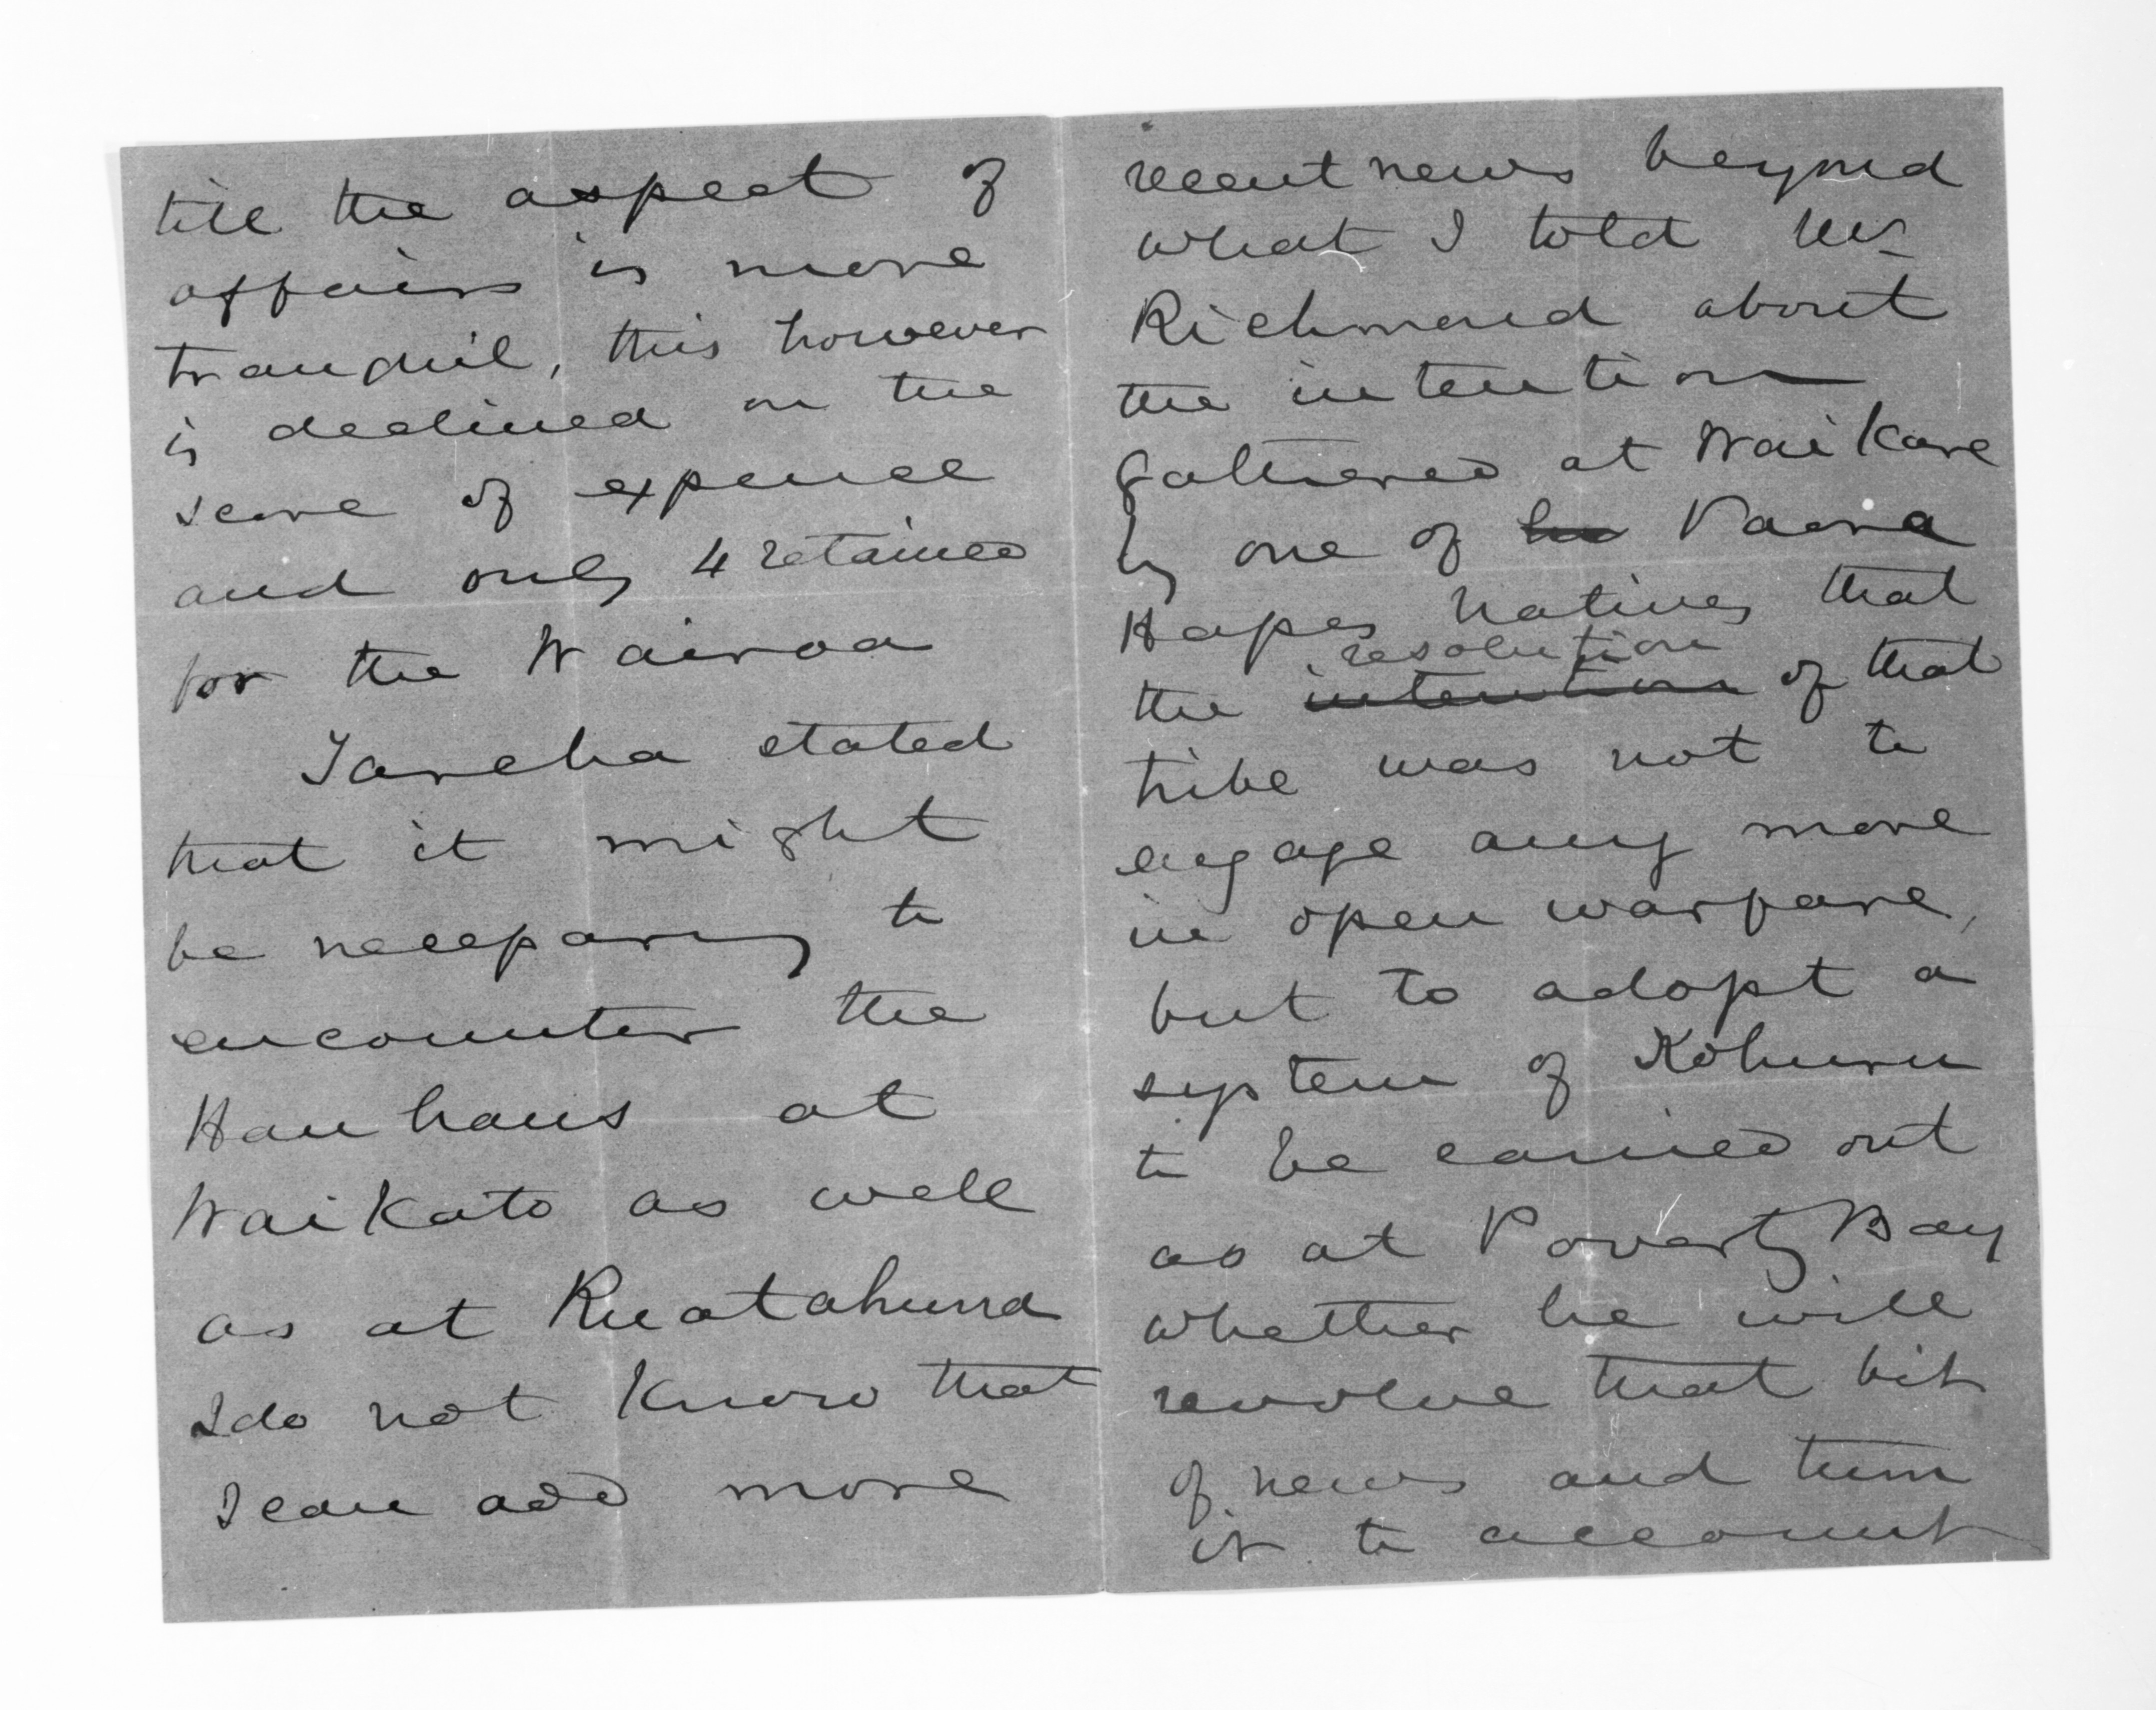 till the aspect of
affairs is more
tranquil, this however
is declined on the
score of expence
and only 4 retained
for the Wairoa
Tareha stated
that it might
be necessary to
encounter the
Hauhaus at
Waikato as well
as at Ruatahuna
I do not know that
I can add more
recent news beyond
what I told Mr
Richmond about
the intention
gathered at WaiKare
by one of Paora
Hapes natives that
resolution
the intention of that
tribe was not to
engage any more
in open warfare,
but to adopt a
system of Kohuru
to be carried out
as at Poverty Bay
whether he will
revolve that bit
of news and turn
it to account